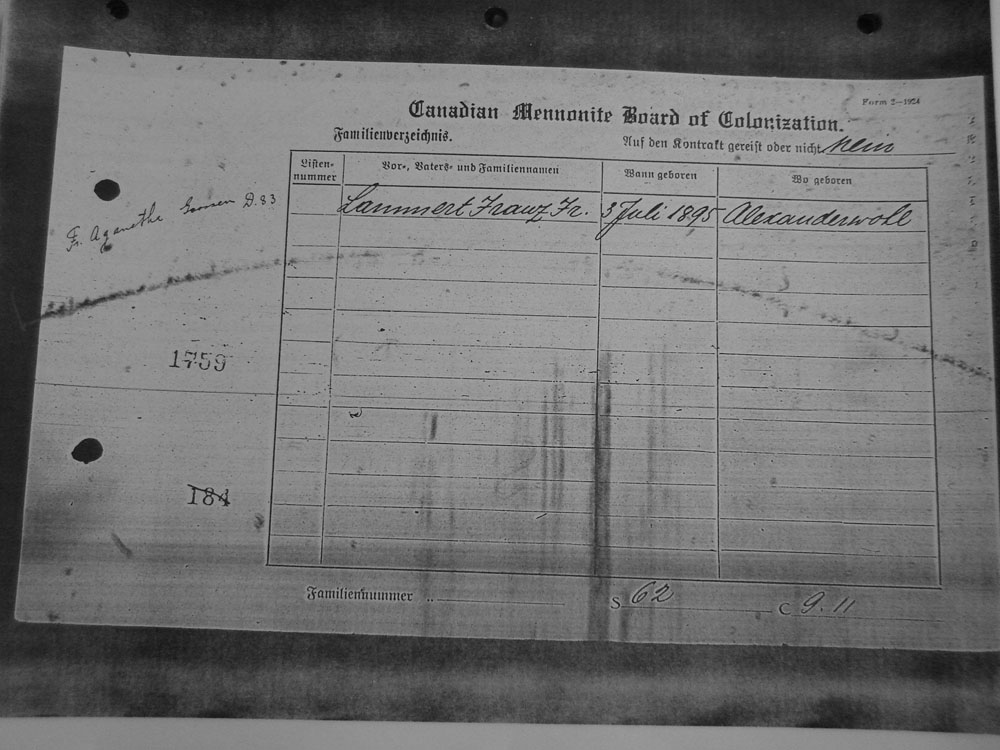 Form 2—1924
Canadian Mennonite Board of Colonization.
Familienverzeichnis.
Auf den Kontrakt gereist oder nicht Nein
Listen-
nummer
Vor-, Vaters- und Familiennamen
Wann geboren
Wo geboren
Fr. Aganethe D. 83
Lammert Franz Fr.
3 Juli 1895
Alexanderwohl
1759
184
Familiennummer
S 62
C 9.11